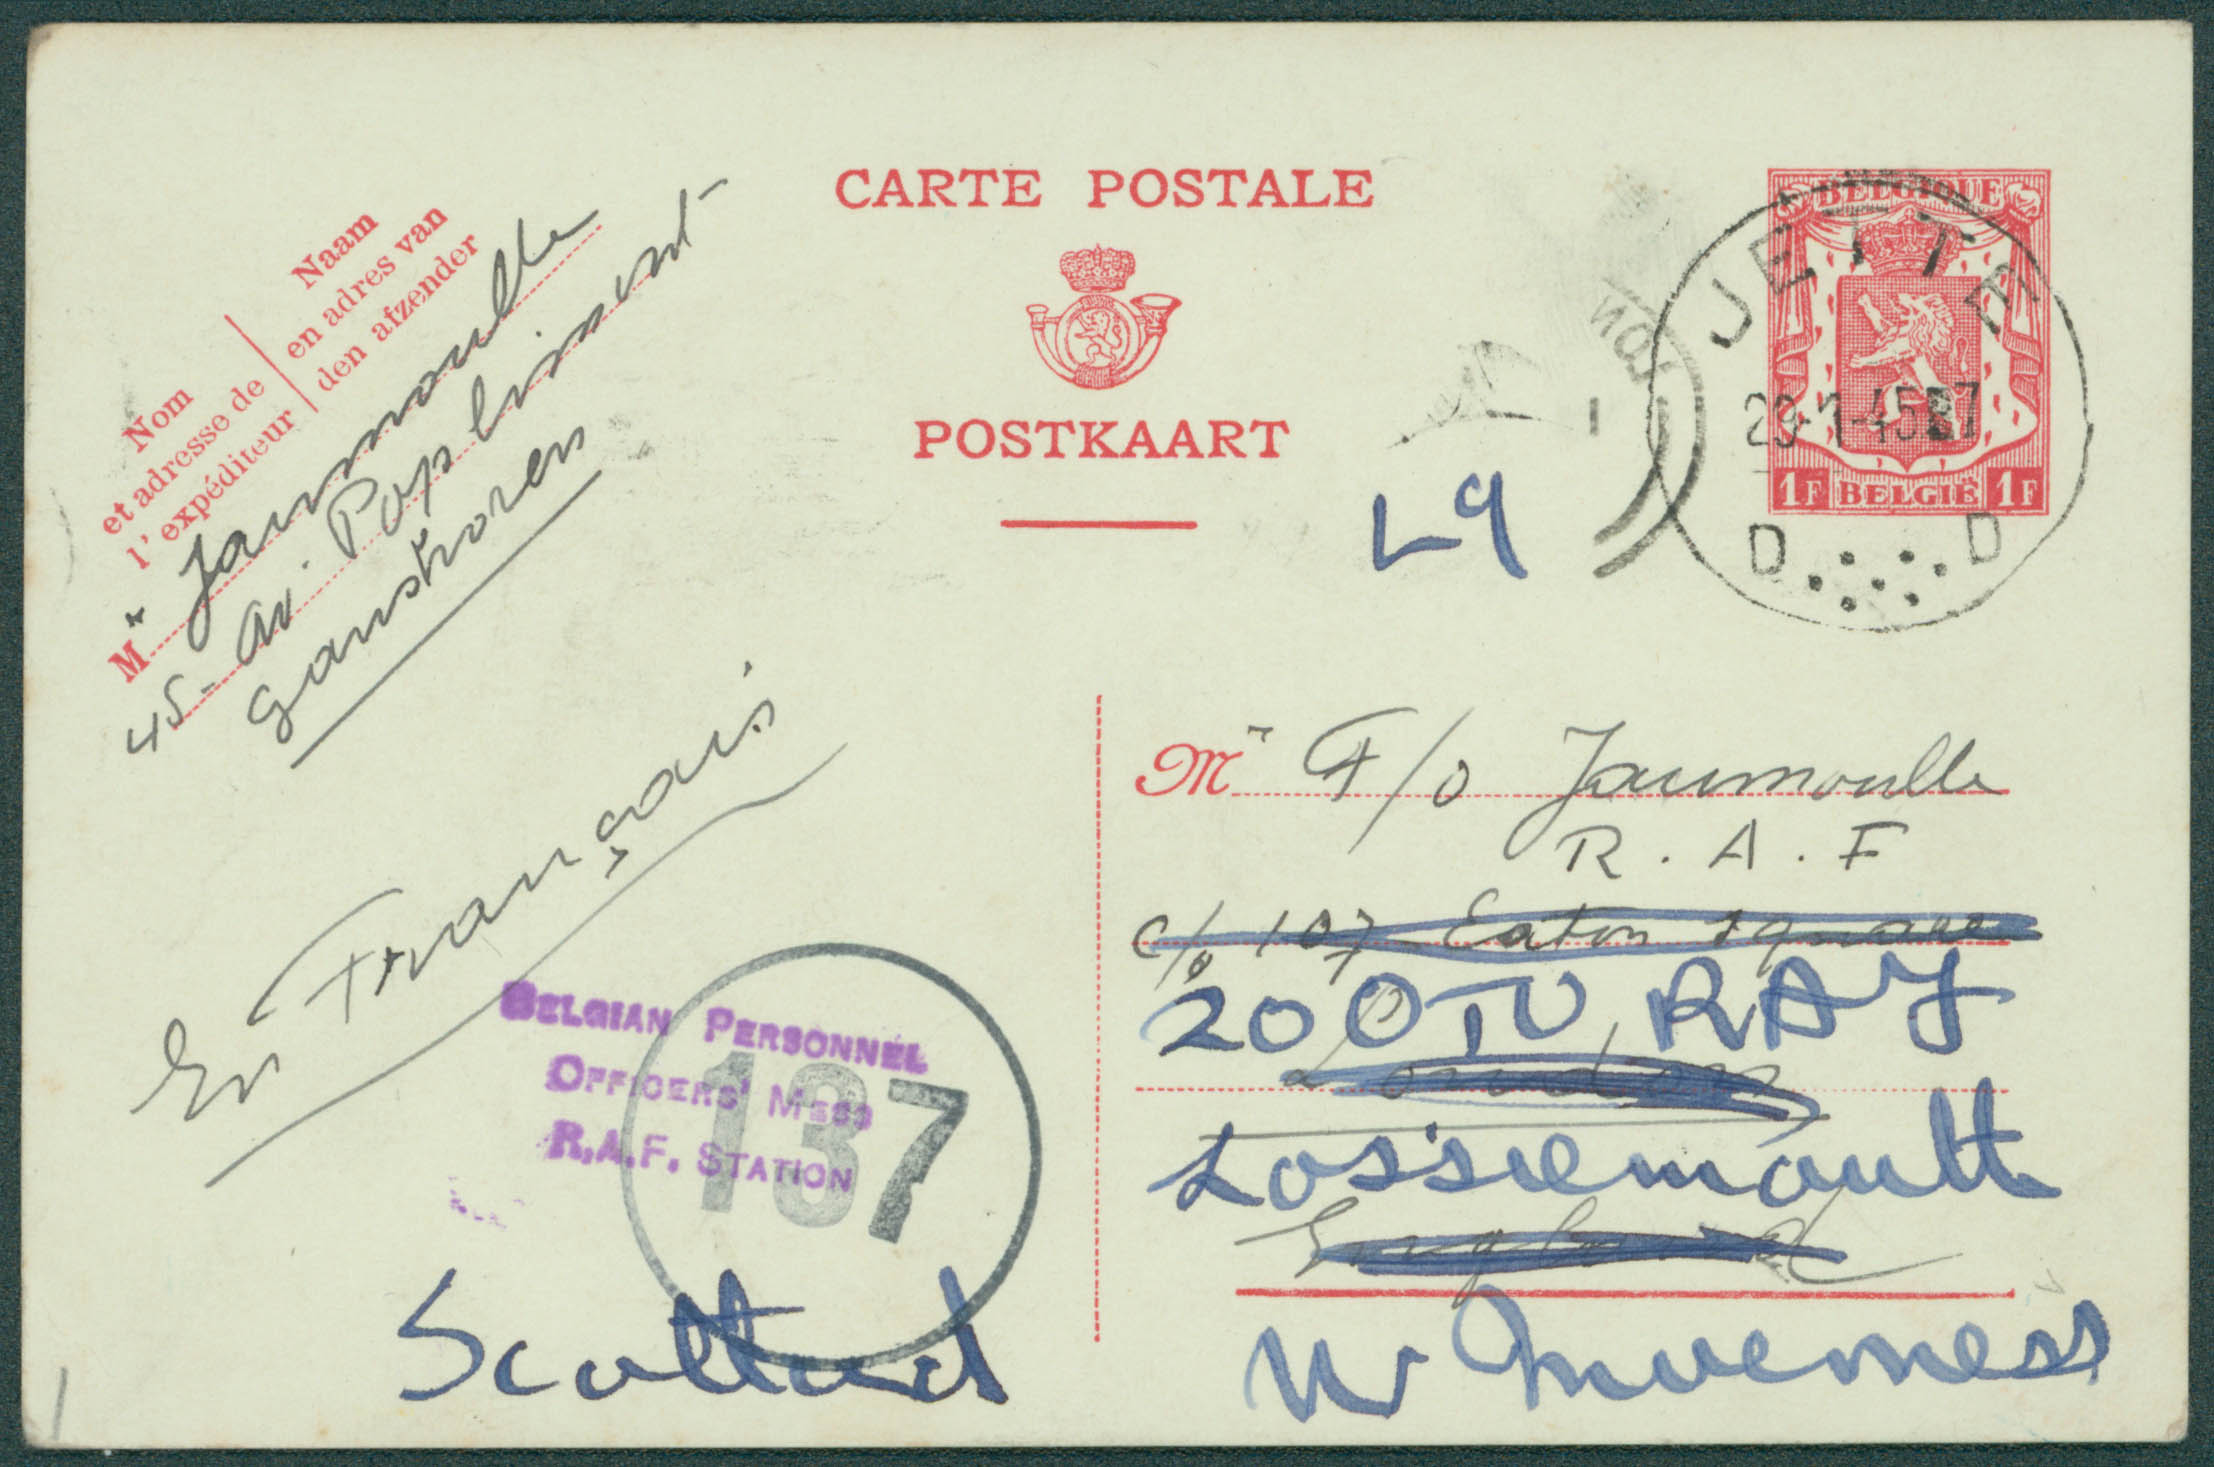 CARTE POSTALE
POSTKAART
BELGIQUE
1F BELGIË 1F
JETTE
29-1-45
D D
L9
Nom
et adresse de
l'expéditeur
Naam
en adres van
den afzender
Mr Jaumoulle
45- av. Poplimont
Ganshoren
En Français
BELGIAN PERSONNEL
OFFICERS' MESS
R.A.F. STATION
137
Mr F/O Jaumoulle
R.A.F
c/o 107 Eaton Square
20 OTU RAF
London
Lossiemoutt
England
Nr Inverness
Scotland